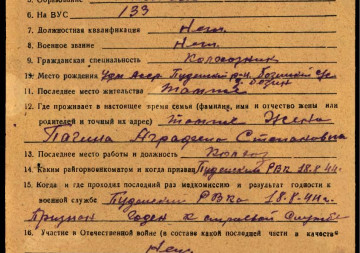 6. На ВУС 133
7. Должностная квалификация Нет.
8. Военное звание Нет.
9. Гражданская специальность Колхозник
10. Место рождения Удм Асср. Пудемский р-н.
11. Последнее место жительства Там же
12. Где проживает в настоящее время семья (фамилия, имя и отчество жены или
родителей и точный их адрес) Там же Жена
Степановна
13. Последнее место работы и должность Колхоз
14. Каким райгорвоенкоматом и когда призван Пудемский РВК 18.8.41г.
15. Когда и где проходил последний раз медкомиссию и результат годности к
военной службе Пудемский РВКа 18.8.41г.
Признан Годен к строевой службе
16. Участие в Отечественной войне (в составе какой последней части и в качестве
Нет